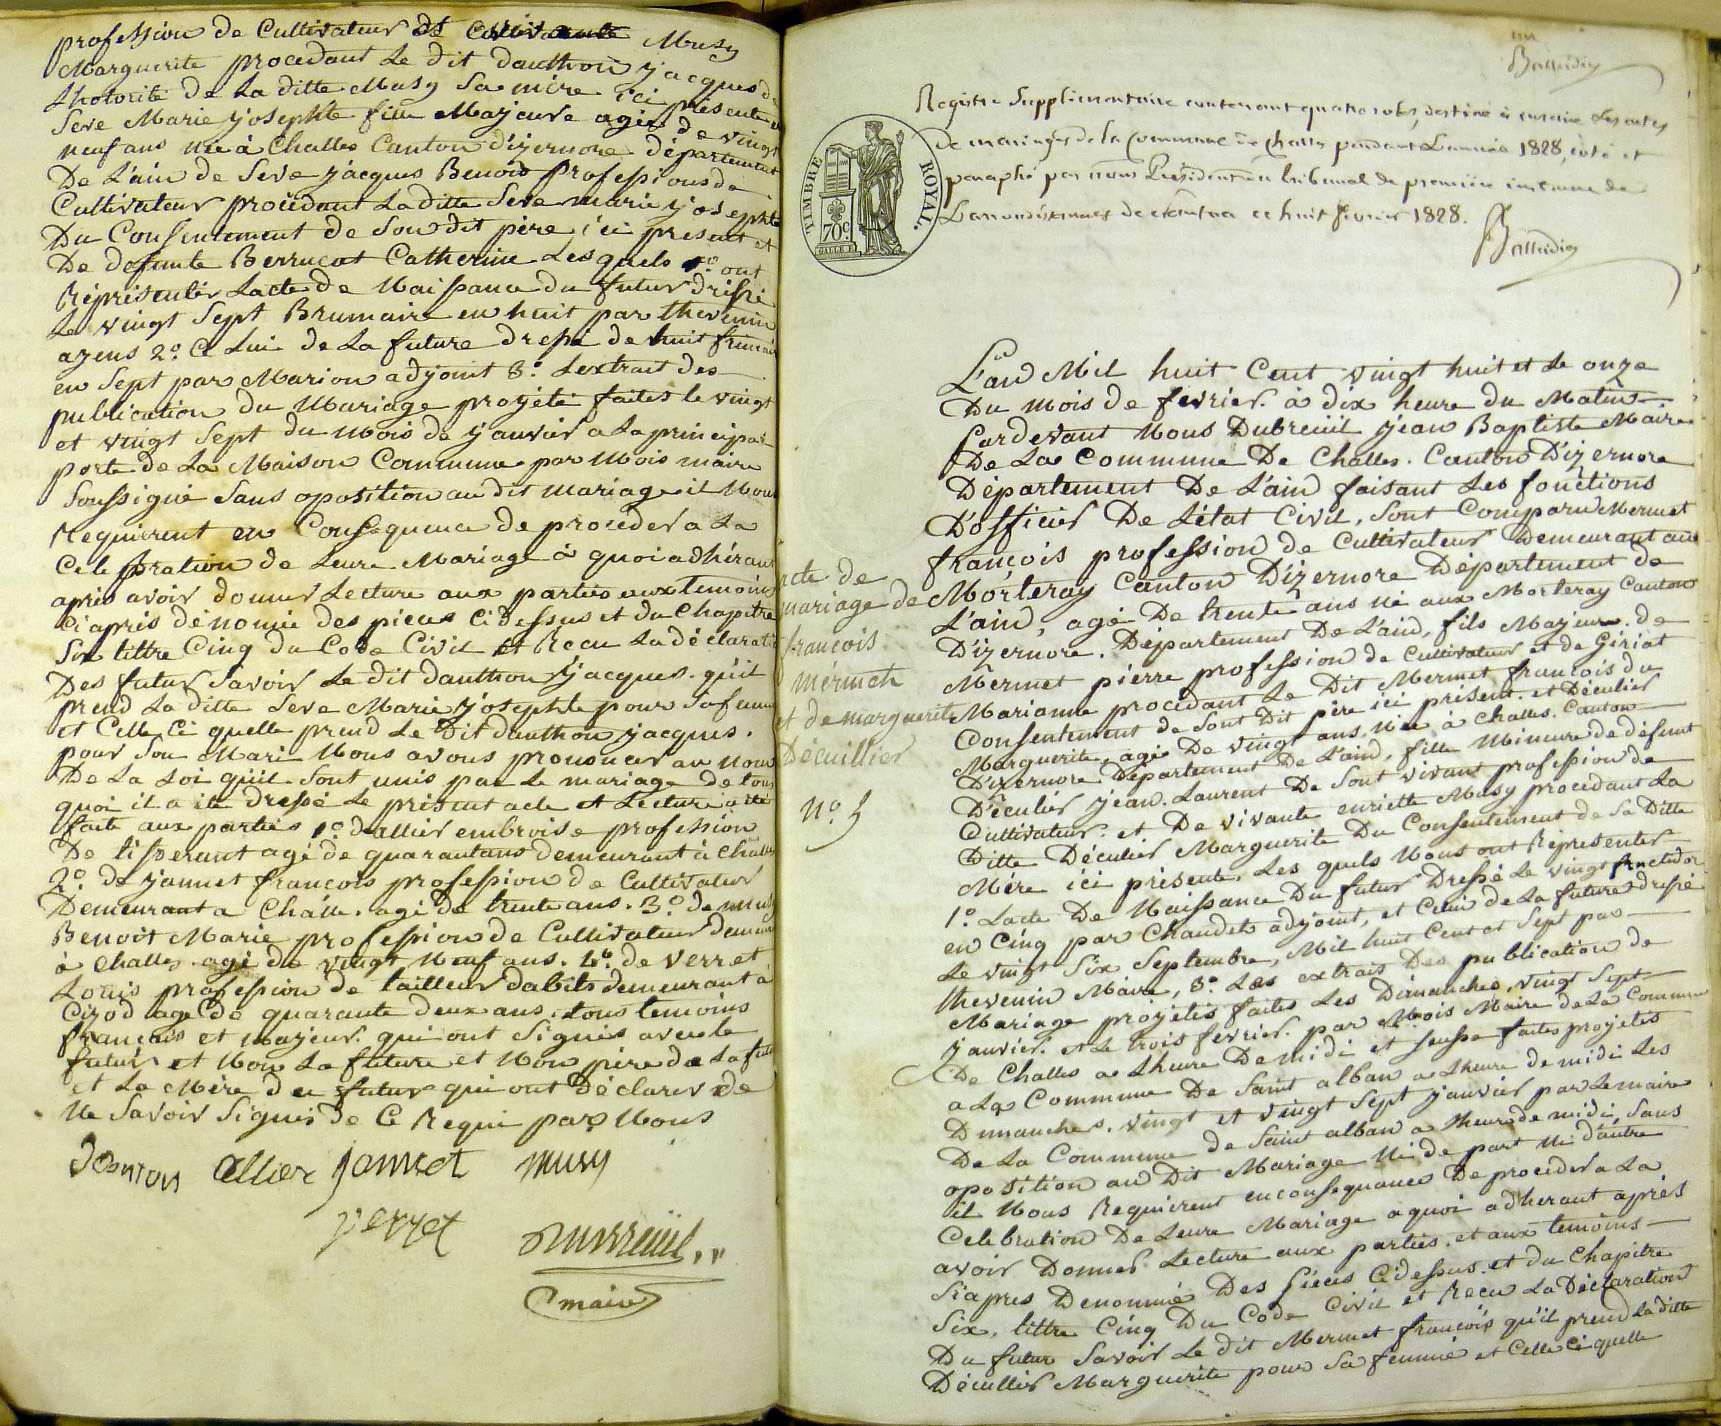 profession de Cultivateur et Musy
Marguerite procedant Le dit danthon jacques de
Lhotorité de La ditte Musy Sa mére ici présente et
Seve Marie josephte fille Majeure agée de vingt
neuf ans née à Challes Canton d'izernore département
De L'ain de Seve jacques Benoit professions de
Cultivateur procédant Laditte Seve marie josephte
Du Consintement de Son dit pére ici present et
De defunte Berrucat Catherine Lesquels 1o ont
Réprésenter Lacte de Naissance du futur dréssé
Le vingt Sept Brumaire en huit par thevenin
agens 2o Ce Lui de La future dressé de huit frimaire
en Sept par Marion adjoint 3o Lextrait des
publication du Mariage projété faites le vingt
et vingt Sept du Mois de janvier a La principal
porte de La Maison Commune par Nois maire
Soussigné Sans oposition au dit mariage il Nous
Requierent en Consequence de proceder a La
Celebration de Leure Mariage à quoi adhérant
aprés avoir donner Lecture aux parties aux temoins
Ci aprés dénomée des pieces Cidessus et du Chapitre
Six tittre Cinq du Code Civil et Recu La déclaration
Des futur Savoir Le dit danthon jacques quil
prend La ditte Seve Marie josephte pour Safemme
et Celle Ci quelle prend Le dit danthon jacques.
pour Son Mari Nous avons prononcer au Nom
De La Loi quil Sont unis par Le mariage de tous
quoi il a été dressé Le présent acte et Lecture a été
faite aux parties 1o dallier embroise profession
De tisserant agé de quarantans demeurant à Challes
2o de jannet francois profession de Cultivateur
Demeurant a Challe. agé de trente ans. 3o de musy
Benoit Marie profession de Cultivateur demeurant
à Challes agé de vingt Neuf ans. 4o de verret
Louis profession de tailleur dabits demeurant à
Cizod agé de quarante deux ans. tous temoins
francais et Majeur. qui ont Signés avec le
futur et Non La future et Non pére de La future
et La Mére du futur qui ont Déclarer de
Ne Savoir Signés de Ce Requi par Nous
Danton allier jannet musy
verret dubreüil
maire
Balleidier
Registre Supplémentaire contenant quatre roles, destiné à inscrire les actes
de mariages de la Commune de Challes pendant L'année 1828, coté et
paraphé par nous Président du tribunal de première instance de
L'arrondissement de Nantua ce huit février 1828.
Balleidier
TIMBRE ROYAL.
70c
L'an Mil huit Cent vingt huit et Le onze
Du mois de fevrier. à dix heure du Matin
Pardevant Nous Dubreuil jean Baptiste Maire
De La Commune De Challes. Canton D'izernore
Département De L'ain faisant Les fonctions
D'officier De L'état Civil, Sont Comparu Mermet
françois profession de Cultivateur Demeurant au
Morteray Canton D'izernore Département de
L'ain, agé De trente ans né aux Morteray Canton
D'izernore. Département De L'ain, fils Majeur de
Mermet piérre profession de Cultivateur et de Giriat
Marianne procédant Le Dit Mermet francois du
Consentement de Sont Dit pére ici présent. et Déculier
Marguerite, agée De vingt ans. Née à Challes. Canton
D'izernore Département De L'ain, fille Mineure de défunt
Déculier jean Laurent De Sont vivant profession de
Cultivateur. et De vivante enriette Musy procedant La
Ditte Déculier Marguerite Du Consentement de Sa Ditte
Mére ici présente, Les quels Nous ont Réprésenter
1o Lacte De Naissance Du futur Dréssé Le vingt fructidor
en Cinq par Chaudet adjoint, et Celui de La future dréssé
Le vingt Six Septembre, Mil huit Cent et Sept par
thevenin Maire, 3o Les extrais Des publication de
Mariage projétés faites Les Dimanches, vingt Sept
janvier. et Le trois fevrier. par Nois Maire de La Commune
De Challes a Lheure De midi et faites projétés
a La Commune De Saint alban a Lheure de midi Les
Dimanches. vingt et vingt Sept janvier par Le maire
De La Commune de Saint alban a Lheure de midi, Sans
oposition au Dit Mariage Ni de part Ni D'autre
il Nous Requierent enconsequance De proceder a La
Celebration De Leure Mariage a quoi adherant aprés
avoir Donner Lecture aux parties. et aux temoins
Siapres Denommé Des Piéces Cidessus. et du Chapitre
Six, tittre Cinq Du Code Civil et Recu La Déclaration
Du futur Savoir Le dit Mermet françois quil prend La ditte
Décullier Marguerite pour Sa femme et Celle Ci quelle
acte de
mariage de
françois
mérmet
et de marguerite
Décuillier
no 5